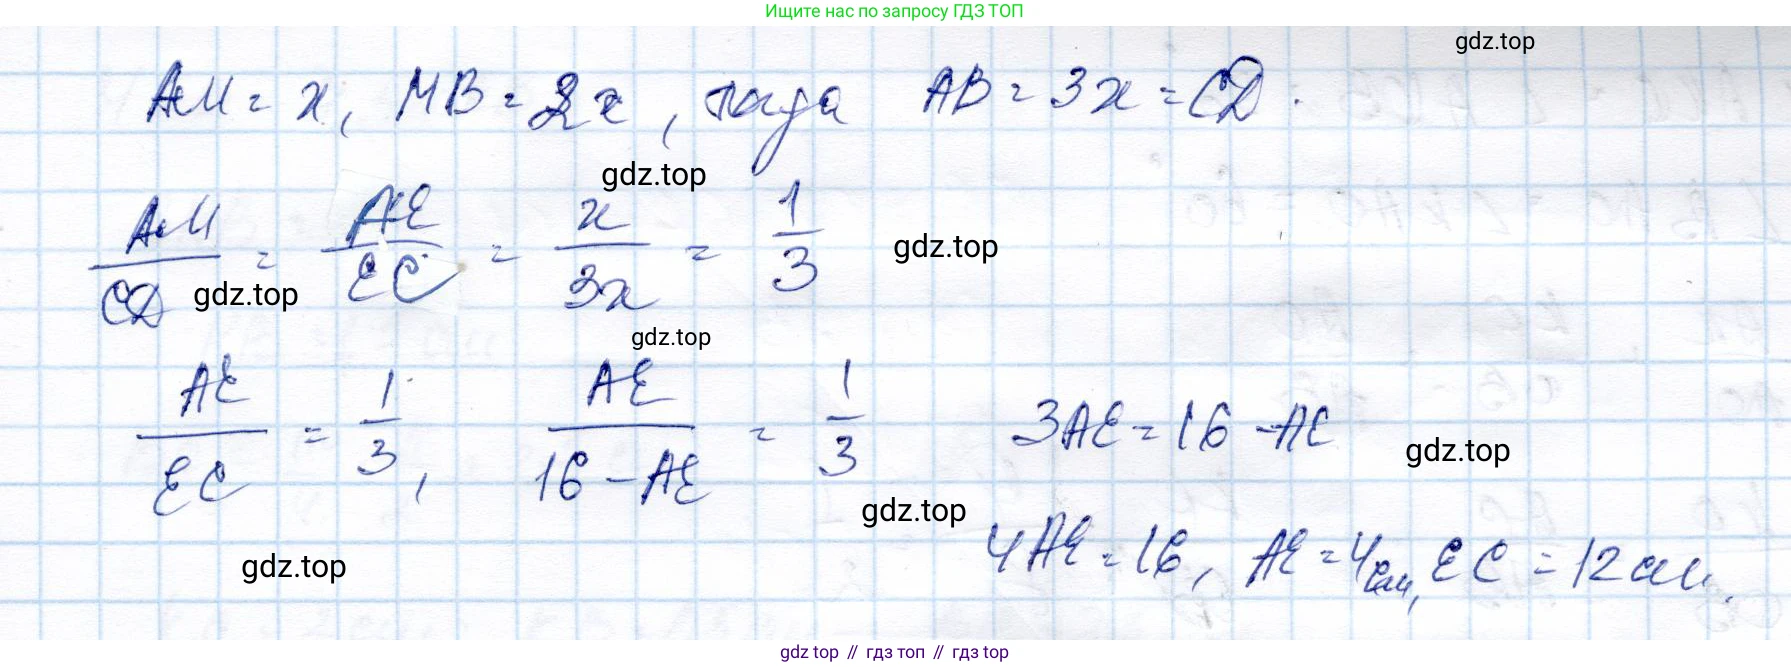 Ищите нас по запросу ГДЗ ТОП
gdz.top
AM = x, MB = 2x, тогда AB = 3x = CD.
gdz.top
AM/CD = AE/EC = x/3x = 1/3
gdz.top
gdz.top
gdz.top
AE/EC = 1/3, AE/(16 - AE) = 1/3 3AE = 16 - AE
gdz.top
gdz.top
4AE = 16, AE = 4см, EC = 12 см.
gdz.top
gdz top // гдз топ // гдз top